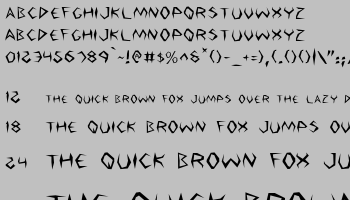 ABCDEFGHIJKLMNOPQRSTUVWXYZ
ABCDEFGHIJKLMNOPQRSTUVWXYZ
0123456789`~!@#$%^&*()-_+=),(.()()|\":;
12 THE QUICK BROWN FOX JUMPS OVER THE LAZY D
18 THE QUICK BROWN FOX JUMPS OV
24 THE QUICK BROWN FOX JU